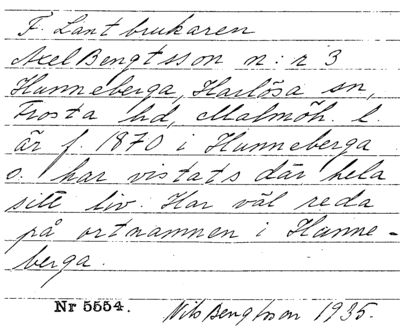 F. Lantbrukaren
Axel Bengtsson n:r 3
Hunneberga, Harlösa sn,
Frosta hd, Malmöh. l.
är f. 1870 i Hunneberga
o. har vistats där hela
sitt liv. Har väl reda
på ortnamnen i Hunne-
berga.
Nr 5554. Nils Bengtsson 1935.